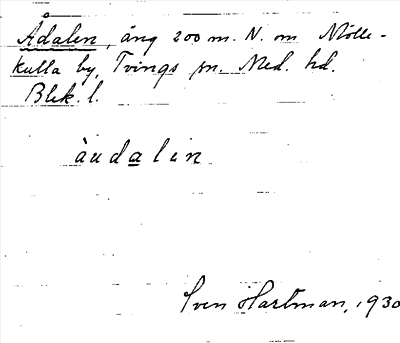 Ådalen, äng 200 m. N. om Mölle-
kulla by, Tvings sn. Med. hd.
Blek. l.
àudalin
Sven Hartman, 1930